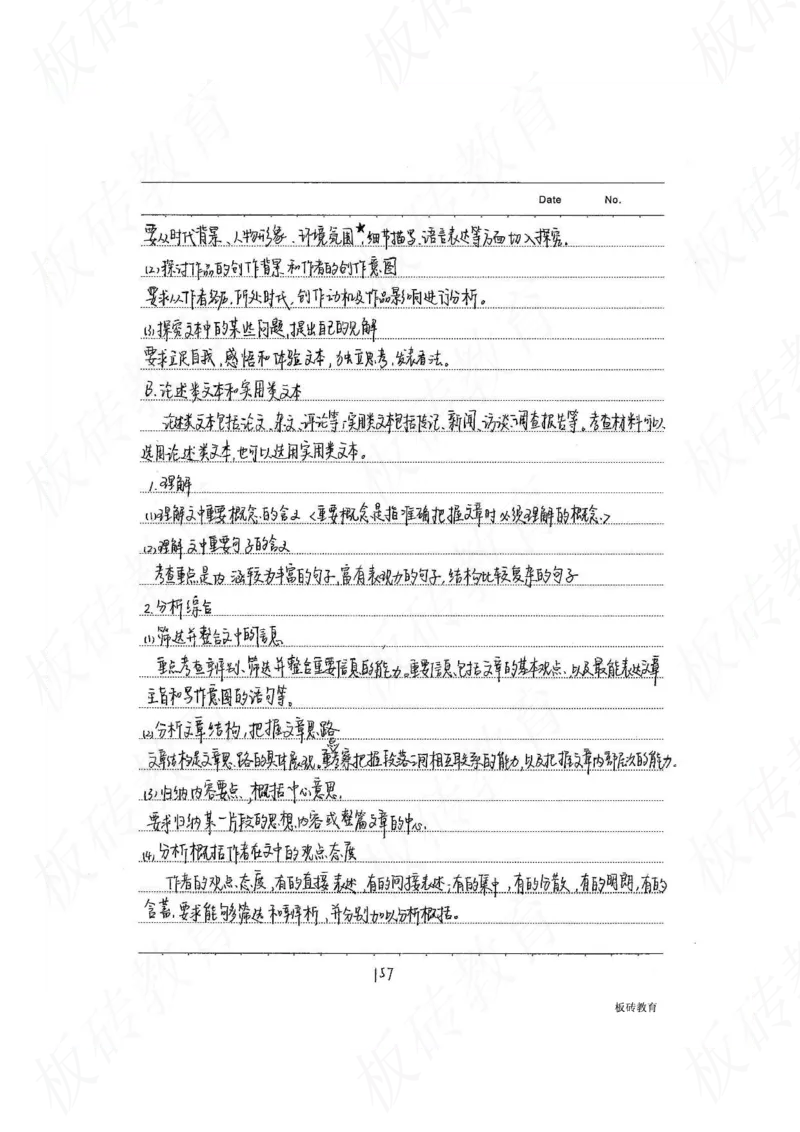 Date No.
要从时代背景、人物形象、环境氛围★、细节描写、语言表达等方面切入探究。
(2)探讨作品的创作背景和作者的创作意图
要求从作者经历,所处时代,创作动机及作品影响进行分析。
(3)探究文本中的某些问题,提出自己的见解
要求立足自我,感悟和体验文本,独立思考,发表看法。
B.论述类文本和实用类文本
论述类文本包括论文、杂文、评论等;实用类文本包括传记、新闻、访谈、调查报告等。考查材料可以
选用论述类文本,也可以选用实用类文本。
1.理解
(1)理解文中重要概念的含义<重要概念是指准确把握文章时必须理解的概念>
(2)理解文中重要句子的含义
考查重点是内涵较为丰富的句子,富有表现力的句子,结构比较复杂的句子
2.分析综合
(1)筛选并整合文中的信息
重点考查辨别、筛选并整合重要信息的能力。重要信息包括文章的基本观点、以及最能表达文章
主旨和写作意图的语句等。
(2)分析文章结构,把握文章思路
文章结构是文章思路的具体展现。重点考察把握段落之间相互联系的能力,以及把握文章内部层次的能力。
(3)归纳内容要点,概括中心意思.
要求归纳某一片段的思想内容或整篇文章的中心.
(4)分析概括作者在文中的观点态度
作者的观点态度,有的直接表述,有的间接表述;有的集中,有的分散,有的明朗,有的
含蓄.要求能够筛选和辨析,并分别加以分析概括。
157
板砖教育